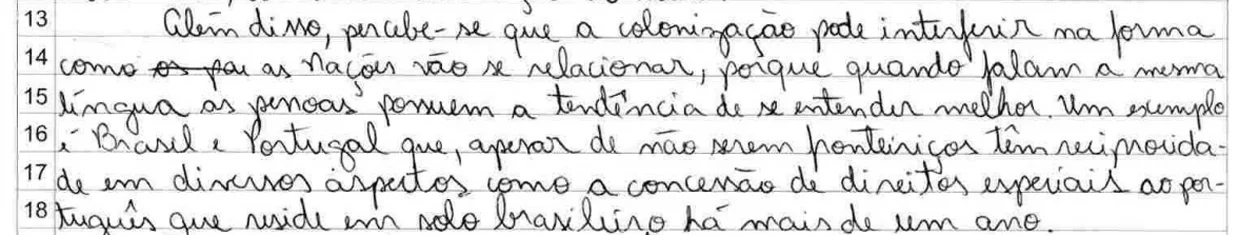 13 Além disso, percebe-se que a colonização pode interferir na forma
14 como os paí as nações vão se relacionar, porque quando falam a mesma
15 língua as pessoas possuem a tendência de se entender melhor. Um exemplo
16 é Brasil e Portugal que, apesar de não serem fronteiriços têm reciprocida-
17 de em diversos aspectos como a concessão de direitos especiais ao por-
18 tuguês que reside em solo brasileiro há mais de um ano.